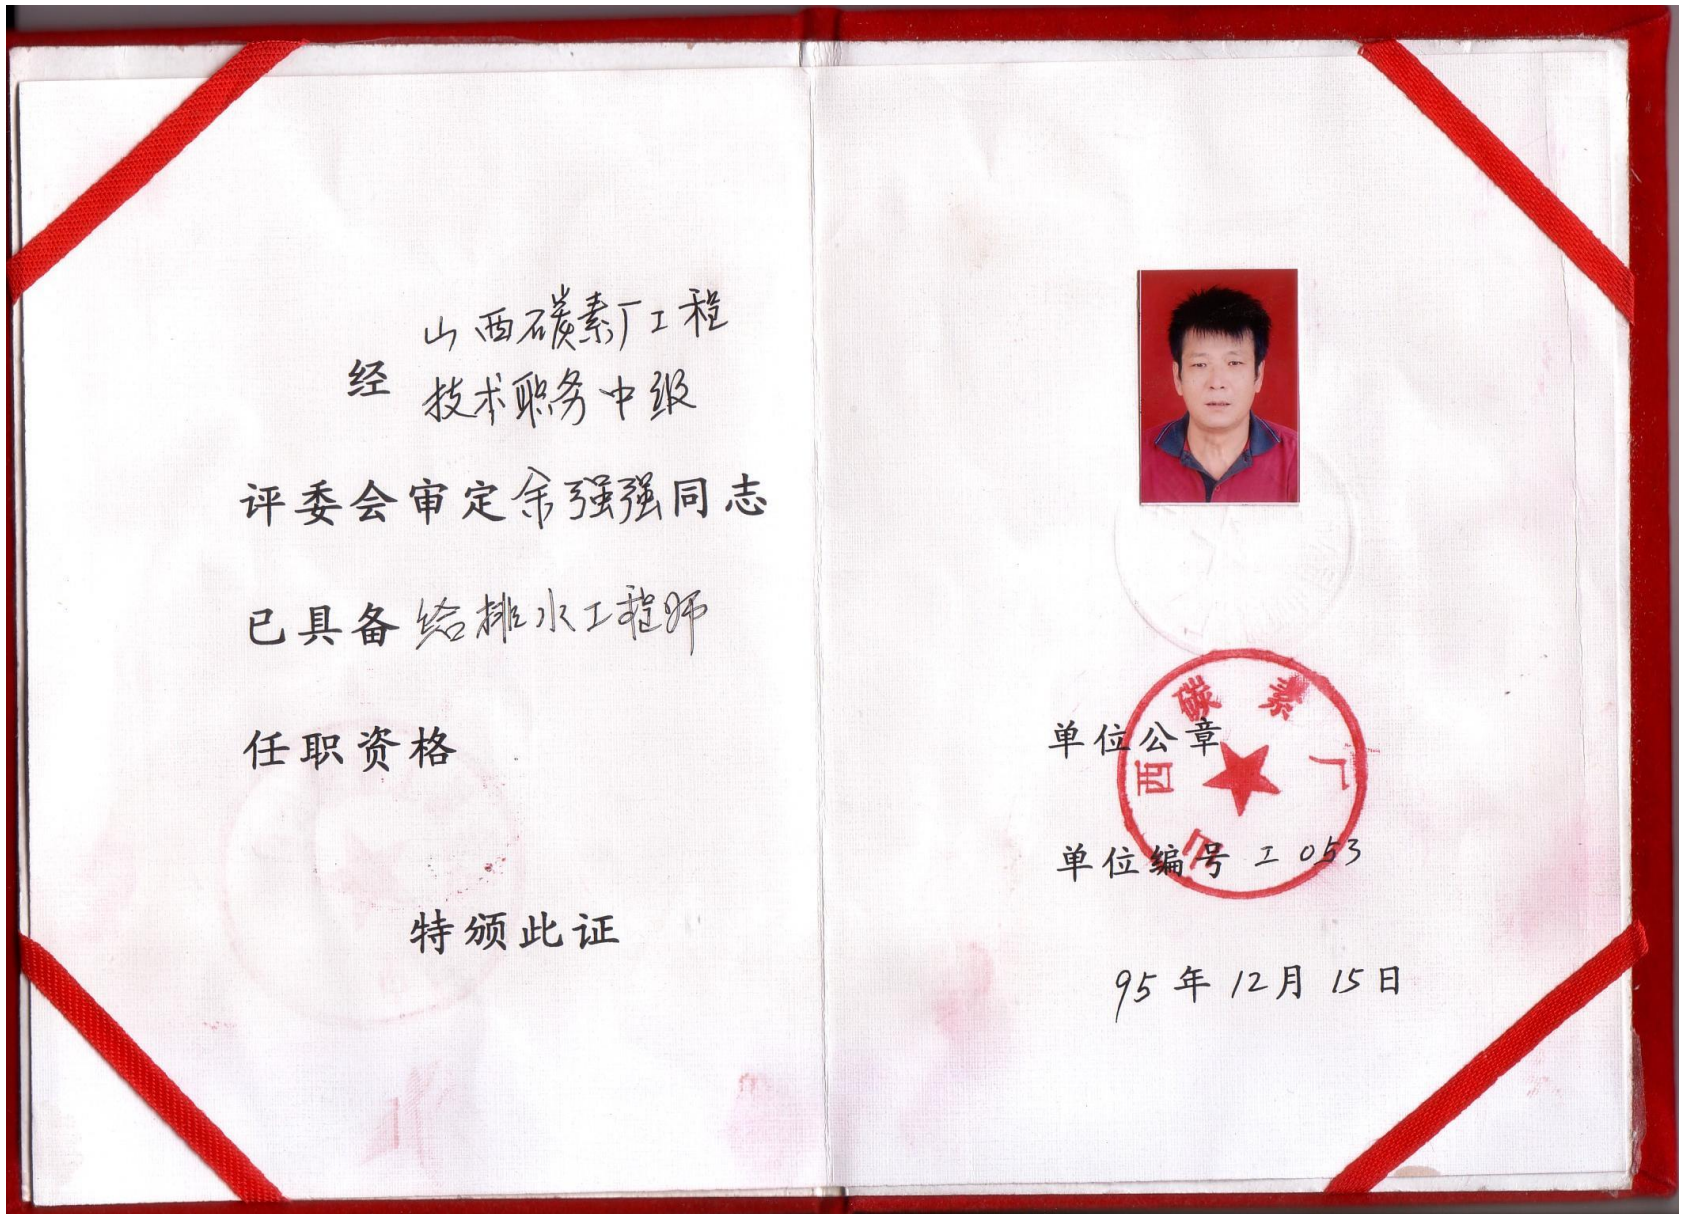 山西碳素厂工程
经
技术职务中级
评委会审定余强强同志
已具备给排水工程师
任职资格
特颁此证
山西碳素厂
单位公章
单位编号 工053
95年12月15日